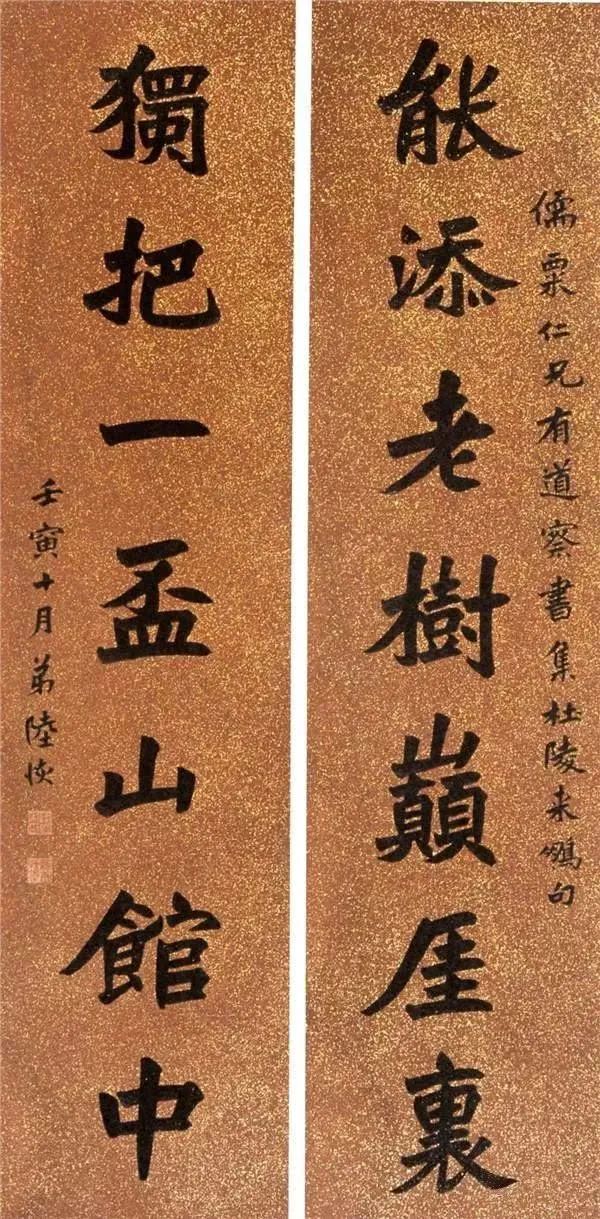 儒粟仁兄有道察書集杜陵来鵬句
能添老樹巔厓裏
獨把一盃山館中
壬寅十月弟陸恢